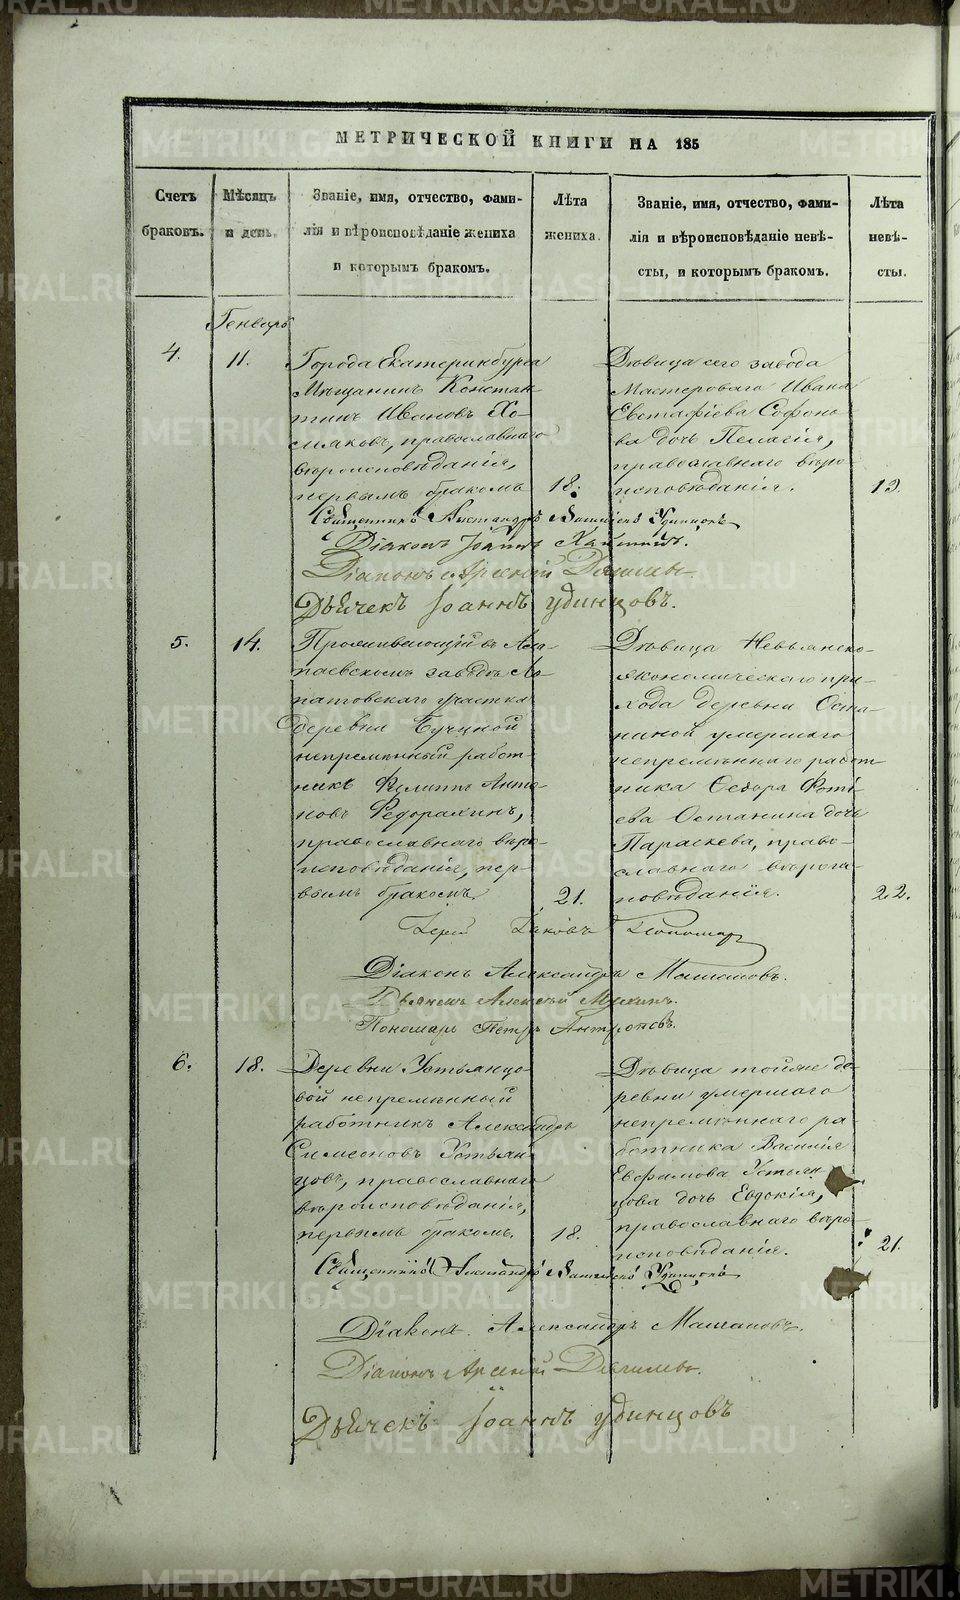 МЕТРИЧЕСКОЙ КНИГИ НА 185
Счетъ браковъ.
Мѣсяцъ и день.
Званіе, имя, отчество, фами-
лія и вѣроисповѣданіе жениха
и которымъ бракомъ.
Лѣта
жениха.
Званіе, имя, отчество, фами-
лія и вѣроисповѣданіе невѣ-
сты, и которымъ бракомъ.
Лѣта
невѣ-
сты.
Генварь
4.
11.
Города Екатеринбурга
Мѣщанинъ Констан
тинъ Ивановъ Хо-
мяковъ, православнаго
вѣроисповѣданія,
первымъ бракомъ
18.
Дѣвица сего завода
Мастероваго Ивана
Евстафіева Софоно-
ва дочь Пелагія,
православнаго вѣро-
исповѣданія.
19.
Священникъ Удинцовъ
Діаконъ Іоаннъ
Діаконъ Арсеній
Дьячекъ Іоаннъ Удинцовъ.
5.
14.
Проживающій въ Ала-
паевскомъ заводѣ
участка
деревни
непремѣнный работ-
никъ Филиппъ Анто-
новъ Федорахинъ,
православнаго вѣро-
исповѣданія, пер-
вымъ бракомъ
21.
Дѣвица Невьянско-
экономическаго при-
хода деревни Оста-
ниной умершаго
непремѣннаго работ
ника Федора Фоті-
ева Останина дочь
Параскева, право-
славнаго вѣроис-
повѣданія.
22.
Іерей Іаковъ Пономарев
Діаконъ Александръ Машановъ.
Дьячекъ Алексѣй Мухинъ.
Пономарь Петръ Антроповъ.
6.
18.
Деревни Устьянцо-
вой непремѣнный
работникъ Александръ
Симеоновъ Устьян
цовъ, православнаго
вѣроисповѣданія,
первымъ бракомъ.
18.
Дѣвица тойже де-
ревни умершаго
непремѣннаго ра-
ботника Василія
Евфимова Устьян
цова дочь Евдокія,
православнаго вѣро-
исповѣданія.
21.
Священникъ Удинцовъ
Діаконъ Александръ Машановъ.
Діаконъ Арсеній
Дьячекъ Іоаннъ Удинцовъ
METRIKI.GASO-URAL.RU